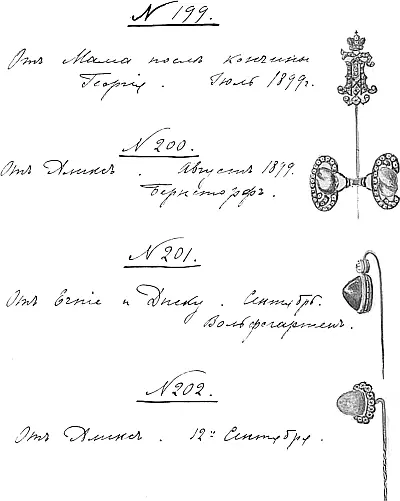 N 199.
Отъ Мама послѣ кончины
Георгія. Іюль 1899г.
N 200.
Отъ Аликсъ. Августъ 1899.
Бернсторфъ.
N 201.
Отъ Ерніе и Дикку. Сентябрь.
Вольфсгартенъ.
N 202.
Отъ Аликсъ. 12го Сентября.